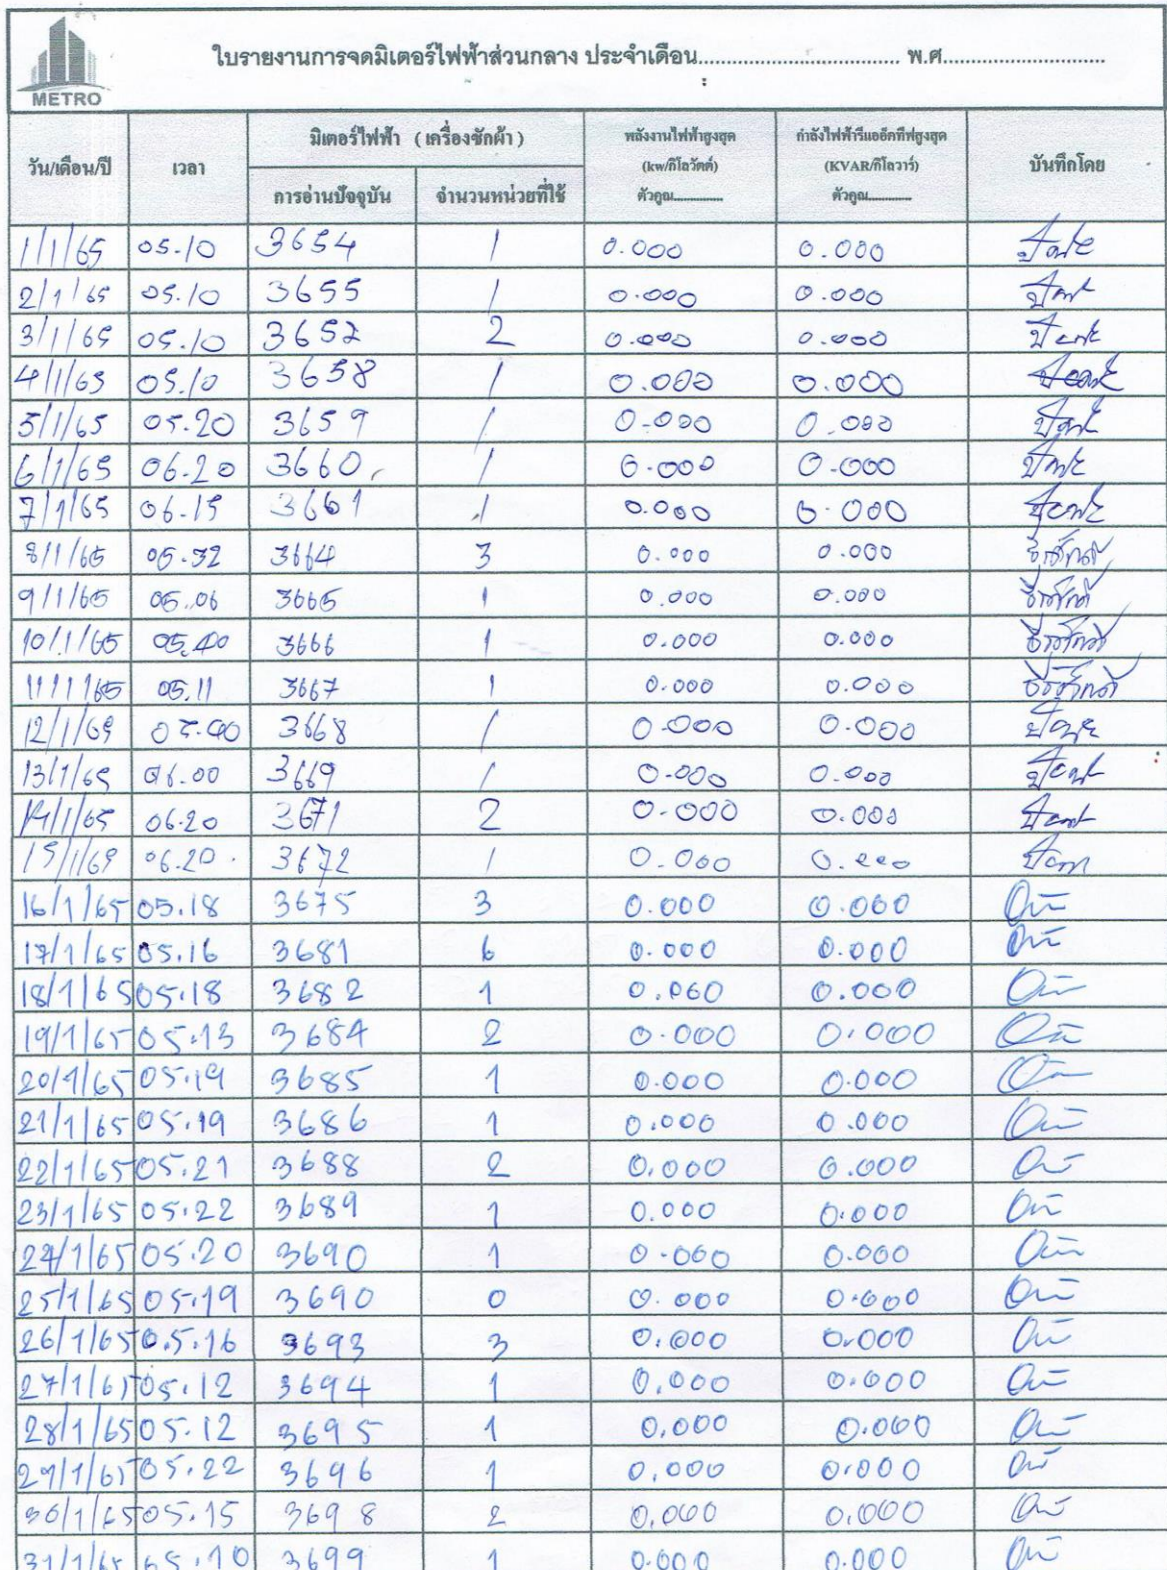 METRO
ใบรายงานการจดมิเตอร์ไฟฟ้าส่วนกลาง ประจำเดือน.................................... พ.ศ.............................
วัน/เดือน/ปี เวลา มิเตอร์ไฟฟ้า (เครื่องซักผ้า) พลังงานไฟฟ้าสูงสุด กำลังไฟฟ้ารีแอ็อกทีฟสูงสุด บันทึกโดย
(kw/กิโลวัตต์) (KVAR/กิโลวาร์)
การอ่านปัจจุบัน จำนวนหน่วยที่ใช้ ตัวคูณ............... ตัวคูณ.............
1/1/65 05.10 3654 1 0.000 0.000
2/1/65 05.10 3655 1 0.000 0.000
3/1/65 05.10 3657 2 0.000 0.000
4/1/65 05.10 3658 1 0.000 0.000
5/1/65 05.20 3659 1 0.000 0.000
6/1/65 06.20 3660 1 0.000 0.000
7/1/65 06.15 3661 1 0.000 0.000
8/1/65 05.32 3664 3 0.000 0.000
9/1/65 05.06 3665 1 0.000 0.000
10/1/65 05.40 3666 1 0.000 0.000
11/1/65 05.11 3667 1 0.000 0.000
12/1/65 05.40 3668 1 0.000 0.000
13/1/65 06.00 3669 1 0.000 0.000
14/1/65 06.20 3671 2 0.000 0.000
15/1/65 06.20 3672 1 0.000 0.000
16/1/65 05.18 3675 3 0.000 0.000
17/1/65 05.16 3681 6 0.000 0.000
18/1/65 05.18 3682 1 0.000 0.000
19/1/65 05.13 3684 2 0.000 0.000
20/1/65 05.19 3685 1 0.000 0.000
21/1/65 05.19 3686 1 0.000 0.000
22/1/65 05.21 3688 2 0.000 0.000
23/1/65 05.22 3689 1 0.000 0.000
24/1/65 05.20 3690 1 0.000 0.000
25/1/65 05.19 3690 0 0.000 0.000
26/1/65 05.16 3693 3 0.000 0.000
27/1/65 05.12 3694 1 0.000 0.000
28/1/65 05.12 3695 1 0.000 0.000
29/1/65 05.22 3696 1 0.000 0.000
30/1/65 05.15 3698 2 0.000 0.000
31/1/65 05.10 3699 1 0.000 0.000